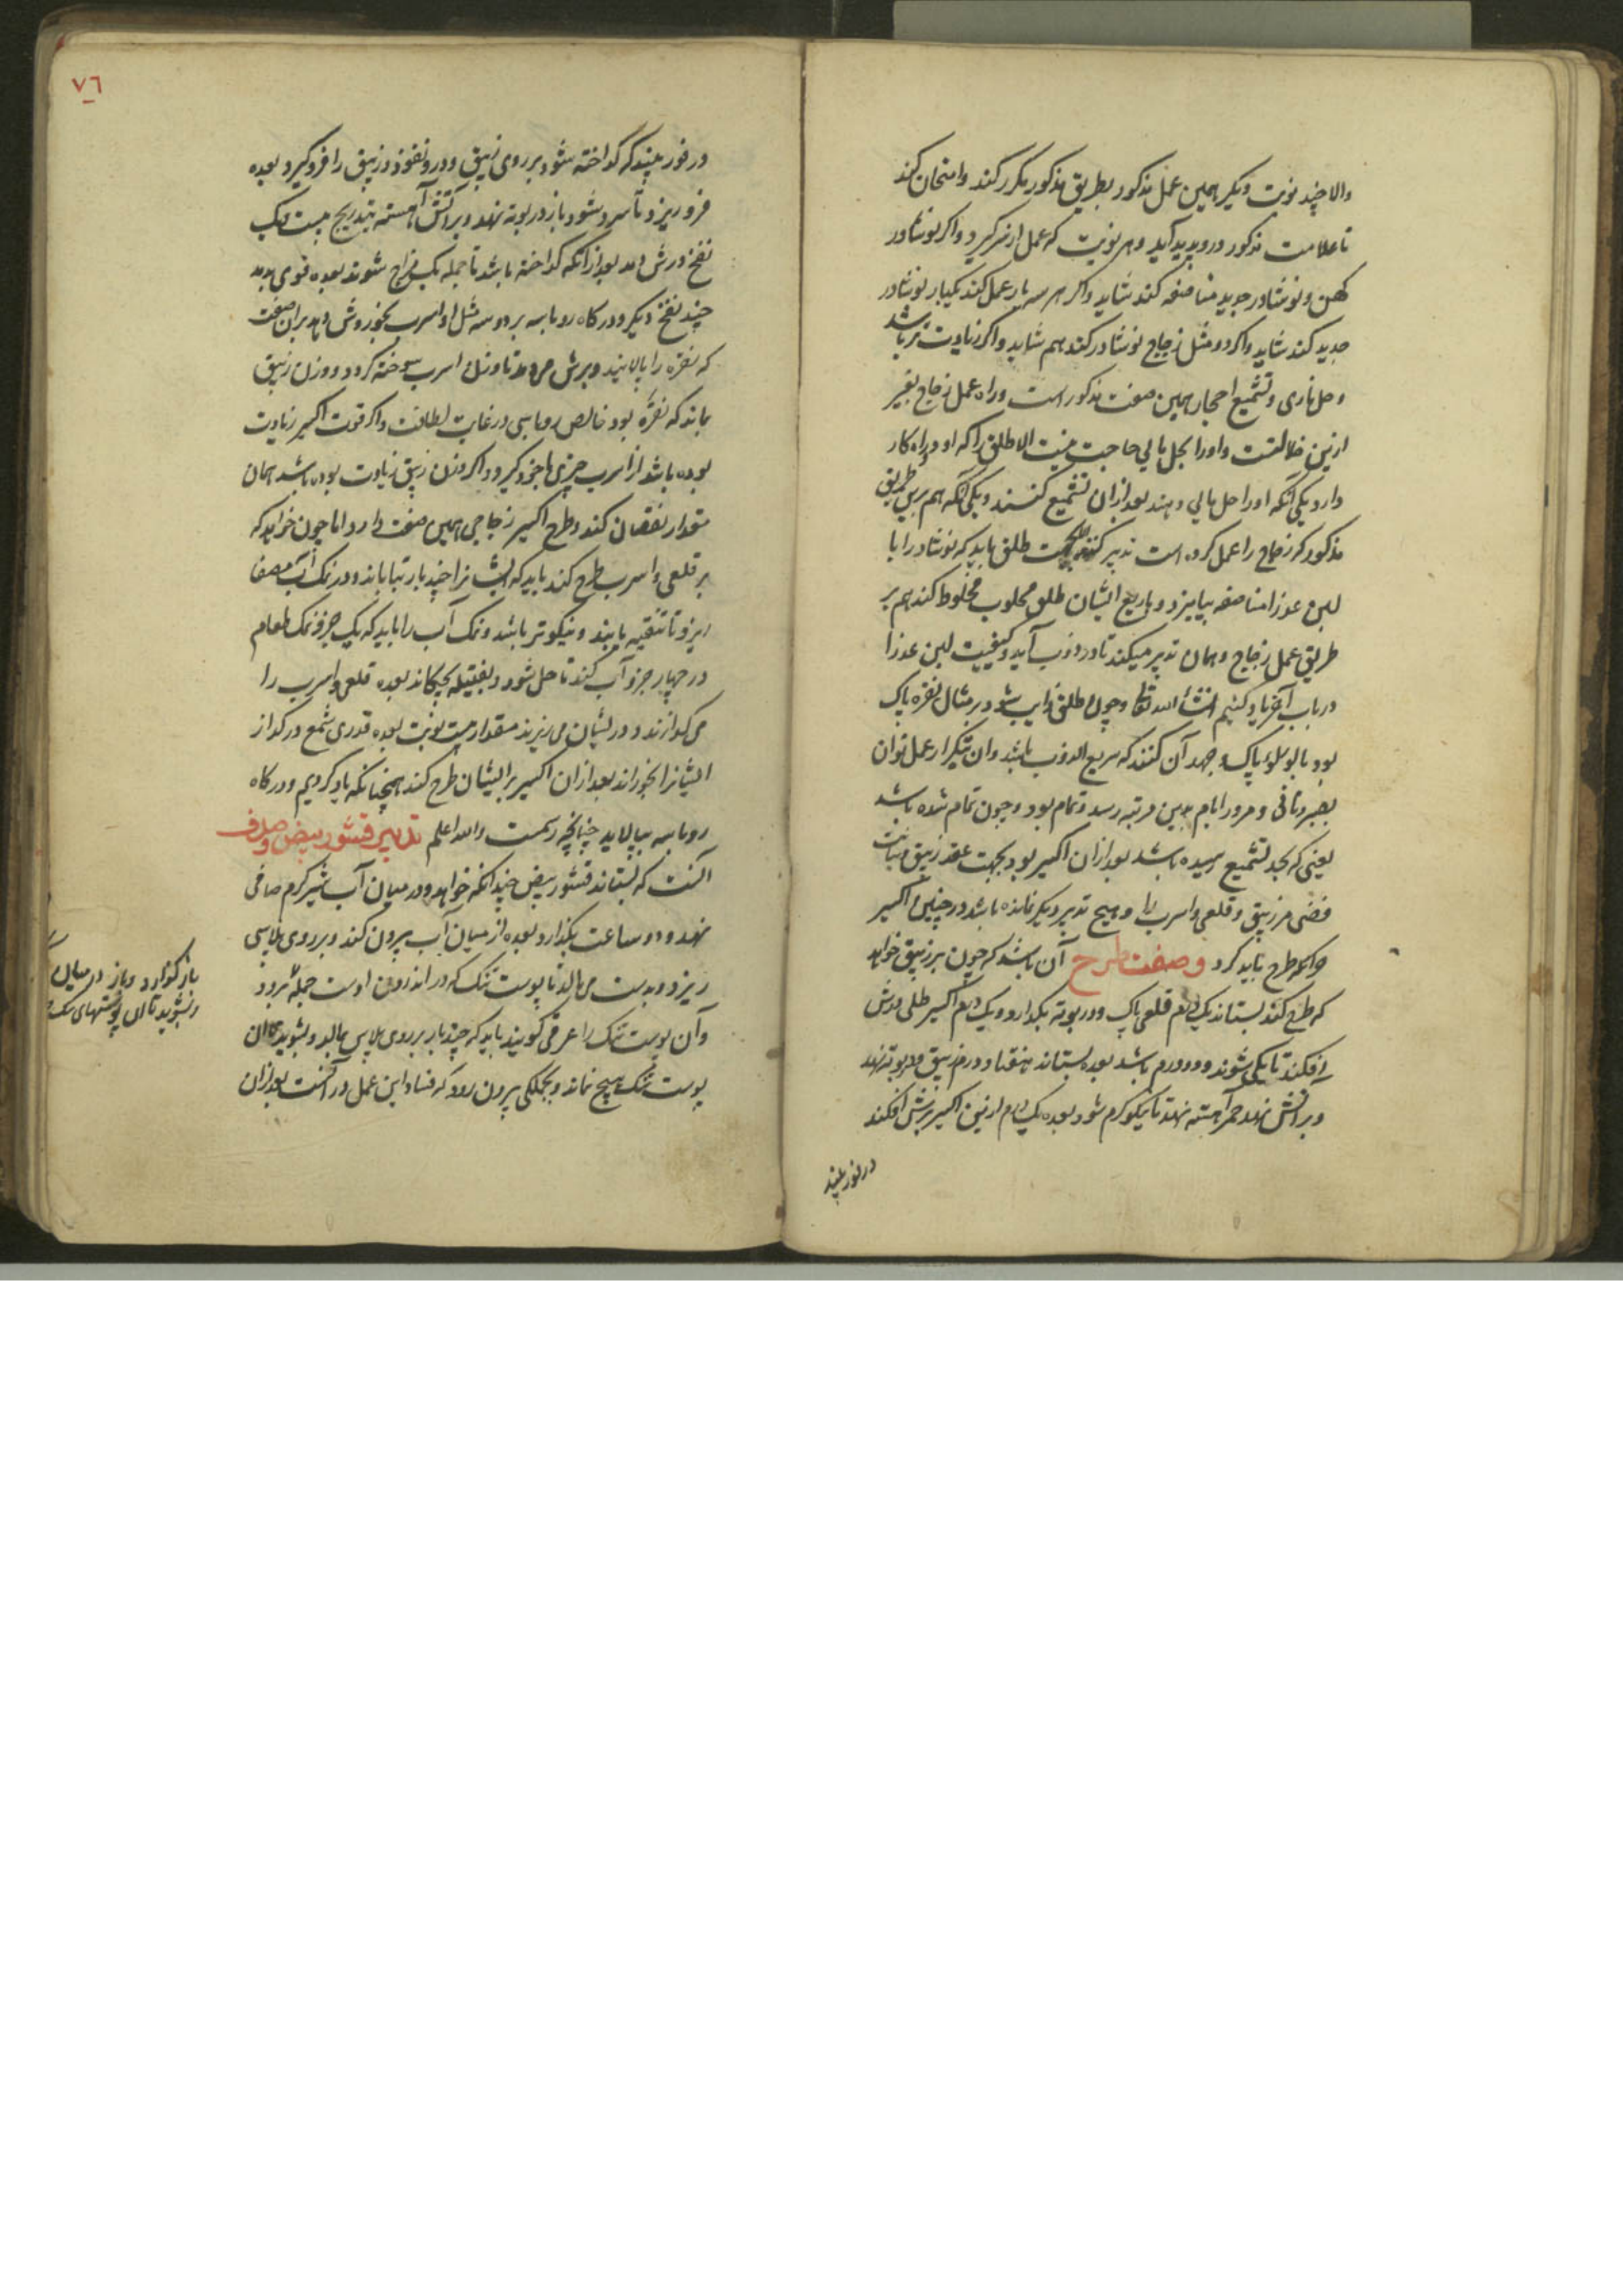 والا چند نوبت دیگر همین عمل مذکور بطریق مذکور مکرر کند وامتحان کند
تا علامت مذکور درو پدید آید وهر نوبت که عمل از سر گیرد واگر نوشادر
کهن ونوشادر جدید مناصفه کند شاید واگر هر سه بار عمل کند یکبار نوشادر
جدید کند شاید واگر دو مثل زجاج نوشادر کند هم شاید واگر زیادت تر باشد
وحل ناری وتشمیع احجار همین صفت مذکور است وراه عمل زجاج بغیر
ازین ضلالتست واورا بحل مائی حاجت نیست الا طلق را که او دو راه کار
دارد یکی آنکه اورا حل مائی دهند بعد ازان تشمیع کنند ویکی آنکه هم برین طریق
مذکور که زجاج را عمل کرده است تدبیر کنند بجهت طلق باید که نوشادر را با
لبن عذرا مناصفه بیامیزد وباربع ایشان طلق محلوب مخلوط کند هم بر
طریق عمل زجاج وهمان تدبیر میکند تا در ذوب آید وکیفیت لبن عذرا
در باب آخر یاد کنیم انشاء الله تعالی وچون طلق ذایب شود بر مثال نقره پاک
بود یا لولوء پاک وجهد آن کنند که سریع الذوب باشد وان بتکرار عمل توان
بصبر وتانی ومرور ایام بدین مرتبه رسد وتمام بود وچون تمام شده باشد
یعنی که بحد تشمیع رسیده باشد بعد ازان اکسیر بود بجهت عقد زیبق وبیاض
فضی مر زیبق وقلعی واسرب را وهیچ تدبیر دیگر نمانده باشد در چنین اکسیر
طرح باید کرد وصفت طرح آن باشد که چون بر زیبق خواهد
که طرح کند بستاند یک درم قلعی پاک ودر بوته بگدازد ویک درم اکسیر طلی بروش
افکند تا یکی شوند ودو درم باشد بعده بستاند هفتاد درم زیبق ودر بوته نهد
وبر آتش نهد جمر آهسته نهد تا نیکو گرم شود بعده یک درم ازین اکسیر برش افکند
در نور بیند
٧٦
در نور بیند که گداخته شود بر روی زیبق ودرو نفوذ وزیبق را فرو گیرد بعده
فرو ریزد تا سرد شود باز در بوته نهد وبر آتش آهسته بتدریج بیست یک
نفخ درش دهد بعد از آنکه گداخته باشد تا جمله یک مزاج شوند بعده قوی بدمد
چند نفخ دیگر ودر کاه روباسه بر دو سه مثل او اسرب بخوروش دهد بران صفت
که نقره را پالایند وبرش تا وزن اسرب سوخته گردد ووزن زیبق
بماند که نقره بود خالص روباسی در غایت لطافت واگر قوت اکسیر زیادت
بوده باشد از اسرب چیزی باخود گیرد واگر وزن زیبق زیادت بوده باشد همان
مقدار نقصان کند وطرح اکسیر زجاجی همین صفت دارد اما چون خواهد که
بر قلعی واسرب طرح کند باید که ایشانرا چند بار بتاباند ودر نمک آب مصفا
ریزد تا تنقیه یابند ونیکوتر باشد ونمک آب را باید که یک جزو نمک طعام
در چهار جزو آب کند تا حل شود وبفتیله بچکاند بعده قلعی واسرب را
می گدازند ودر ایشان می ریزند مقدار بیست نوبت بعده قدری شمع در گداز
ایشانرا بخوراند بعد ازان اکسیر بر ایشان طرح کند همچنانکه یاد کردیم ودر کاه
روباسه بپالاید چنانچه رسمست والله اعلم تدبیر قشور بیض وصدف
آنست که بستاند قشور بیض چندانکه خواهد ودر میان آب شیر گرم صافی
نهد ودو ساعت بگذارد بعده از میان آب بیرون کند وبر روی پلاسی
ریزد وبدست می مالد تا پوست تنک که در اندرون اوست جمله برود
وآن پوست تنک را غرقی گویند باید که چند بار بر روی پلاس بمالد وبشوید تا ان
پوست تنک هیچ نماند وبجملگی بیرون رود که فساد این عمل در آنست بعد ازان
باز گذارد وباز در میان
وبشوید تا ان پوستهای تنک